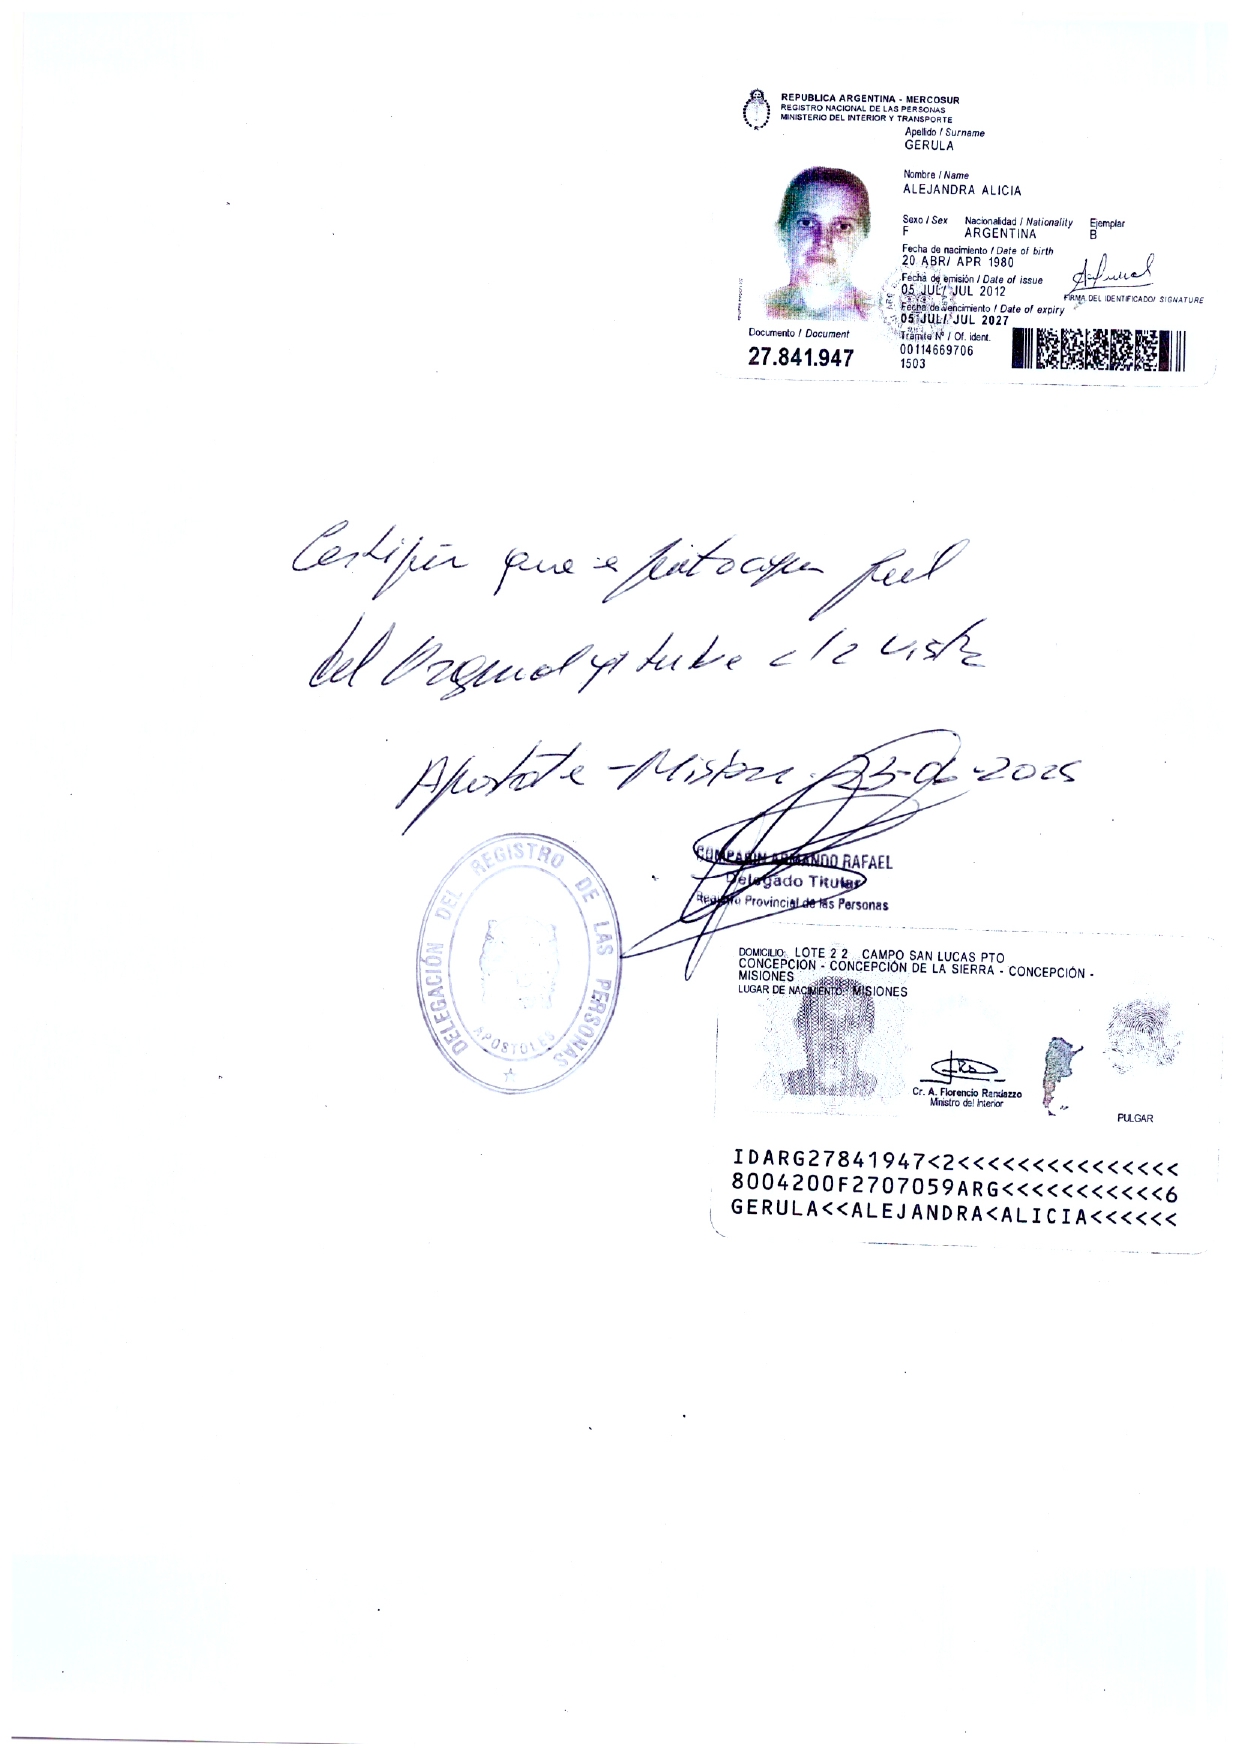 REPUBLICA ARGENTINA - MERCOSUR
REGISTRO NACIONAL DE LAS PERSONAS
MINISTERIO DEL INTERIOR Y TRANSPORTE
Apellido / Surname
GERULA
Nombre / Name
ALEJANDRA ALICIA
Sexo / Sex Nacionalidad / Nationality Ejemplar
F ARGENTINA B
Fecha de nacimiento / Date of birth
20 ABR/ APR 1980
Fecha de emisión / Date of issue
05 JUL/ JUL 2012
FIRMA DEL IDENTIFICADO/ SIGNATURE
Fecha de vencimiento / Date of expiry
05 JUL/ JUL 2027
Documento / Document
27.841.947
Trámite Nº / Of. ident.
00114669706
1503
que fotocopia fiel
del Original q' tuve a la vista
Apóstoles - Misiones 23-06-2025
COMPARIN ARMANDO RAFAEL
Delegado Titular
Registro Provincial de las Personas
DELEGACIÓN DEL REGISTRO DE LAS PERSONAS
APOSTOLES
DOMICILIO: LOTE 2 2 CAMPO SAN LUCAS PTO
CONCEPCION - CONCEPCIÓN DE LA SIERRA - CONCEPCIÓN -
MISIONES
LUGAR DE NACIMIENTO: MISIONES
Cr. A. Florencio Randazzo
Ministro del Interior
PULGAR
IDARG27841947<2<<<<<<<<<<<<<<<
8004200F2707059ARG<<<<<<<<<<<6
GERULA<<ALEJANDRA<ALICIA<<<<<<